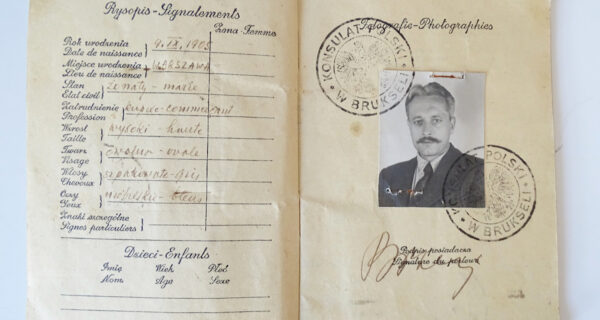 Rysopis-Signalements
Żona-Femme
Rok urodzenia
Date de naissance
9.IX.1905
Miejsce urodzenia
Lieu de naissance
WARSZAWA
Stan
Etat civil
żonaty - marié
Zatrudnienie
Profession
kupiec - commerçant
Wzrost
Taille
wysoki - haute
Twarz
Visage
owalna - ovale
Włosy
Cheveux
gris
Oczy
Yeux
niebieskie - bleus
Znaki szczególne
Signes particuliers
Dzieci-Enfants
Imię Wiek Płeć
Nom. Age Sexe
Fotografie-Photographies
KONSULAT POLSKI
W BRUKSELI
KONSULAT POLSKI
W BRUKSELI
Podpis posiadacza
Signature du porteur